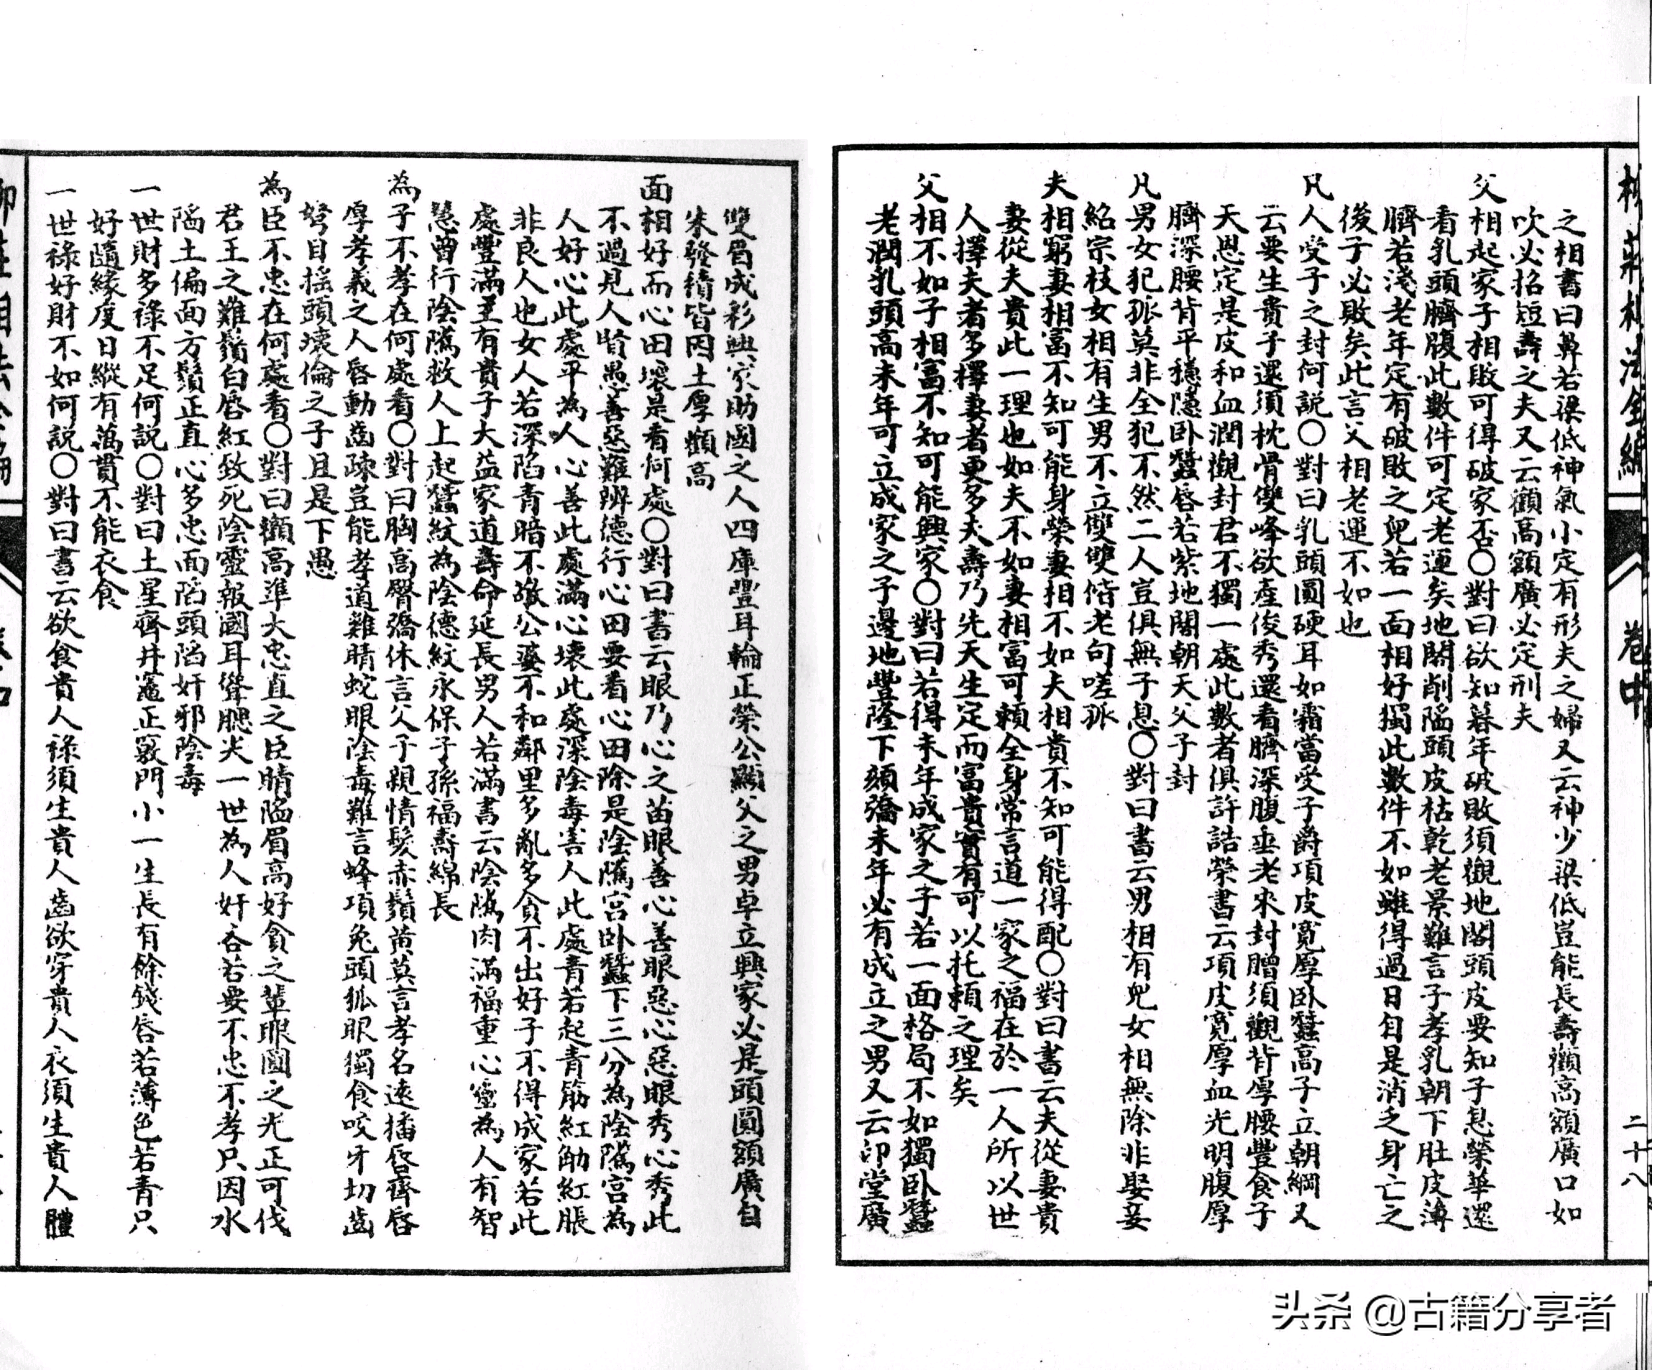 柳莊相法全編
卷中
二十八
之相書曰鼻若梁低神氣小定有形夫之婦又云神少梁低豈能長壽顴高額廣口如
吹必招短壽之夫又云顴高額廣必定刑夫
父相起家子相敗可得破家否○對曰欲知暮年破敗須觀地閣頭皮要知子息榮華還
看乳頭臍腹此數件可定老運矣地閣削陷頭皮枯乾老景難言子孝乳朝下肚皮薄
臍若淺老年定有破敗之兒若一面相好獨此數件不如雖得過日自是消乏身亡之
後子必敗矣此言父相老運不如也
凡人受子之封何說○對曰乳頭圓硬耳如霜當受子爵項皮寬厚卧蠶高子立朝綱又
云要生貴子還須枕骨雙峰欲產俊秀還看臍深腹垂老來封贈須觀背厚腰豐食子
天恩定是皮和血潤觀封君不獨一處此數者俱許誥榮書云項皮寬厚血光明腹厚
臍深腰背平穩隱卧蠶唇若紫地閣朝天父子封
凡男女犯孤莫非全犯不然二人豈俱無子息○對曰書云男相有兒女相無除非娶妾
紹宗枝女相有生男不立雙雙偕老句嗟孤
夫相窮妻相富不知可能身榮妻相不如夫相貴不知可能得配○對曰書云夫從妻貴
妻從夫貴此一理也如夫不如妻相富可賴全身常言道一家之福在於一人所以世
人擇夫者多擇妻者更多夫壽乃先天生定而富貴實有可以托賴之理矣
父相不如子相富不知可能興家○對曰若得末年成家之子若一面格局不如獨卧蠶
老潤乳頭高末年可立成家之子邊地豐隆下頦彌末年必有成立之男又云印堂廣
雙眉成彩興家助國之人四庫豐耳輪正榮公顯父之男卓立興家必是頭圓額廣白
朱發積皆因土厚顴高
面相好而心田壞是看何處○對曰書云眼乃心之苗眼善心善眼惡心惡眼秀心秀此
不過見人賢愚善惡難辨德行心田要看心田除是陰隲宮卧蠶下三分為陰隲宮為
人好心此處平為人心善此處滿心壞此處深陰毒害人此處青若起青筋紅觔紅脹
非良人也女人若深陷青暗不敬公婆不和鄰里多亂多貪不出好子不得成家若此
處豐滿主有貴子大益家道壽命延長男人若滿書云陰隲肉滿福重心靈為人有智
慧曾行陰隲救人上起蠶紋為陰德紋永保子孫福壽綿長
為子不孝在何處看○對曰胸高臀彌休言父子親情髮赤鬚黃莫言孝名遠播唇齊唇
厚孝義之人唇動齒疎豈能孝道雞睛蛇眼陰毒難言蜂項兔頭狐眼獨食咬牙切齒
努目搖頭壞倫之子且是下愚
為臣不忠在何處看○對曰顴高準大忠直之臣睛陷眉高好貪之輩眼圓之光正可伐
君王之難鬚白唇紅致死陰靈報國耳聳腮尖一世為人奸吝若要不忠不孝只因水
陷土偏面方鬚正直心多忠面陷頭陷奸邪陰毒
一世財多祿不足何說○對曰土星齊井竈正竅門小一生長有餘錢唇若薄色若青只
好隨緣度日縱有萬貫不能衣食
一世祿好財不如何說○對曰書云欲食貴人祿須生貴人齒欲穿貴人衣須生貴人體
头条@古籍分享者